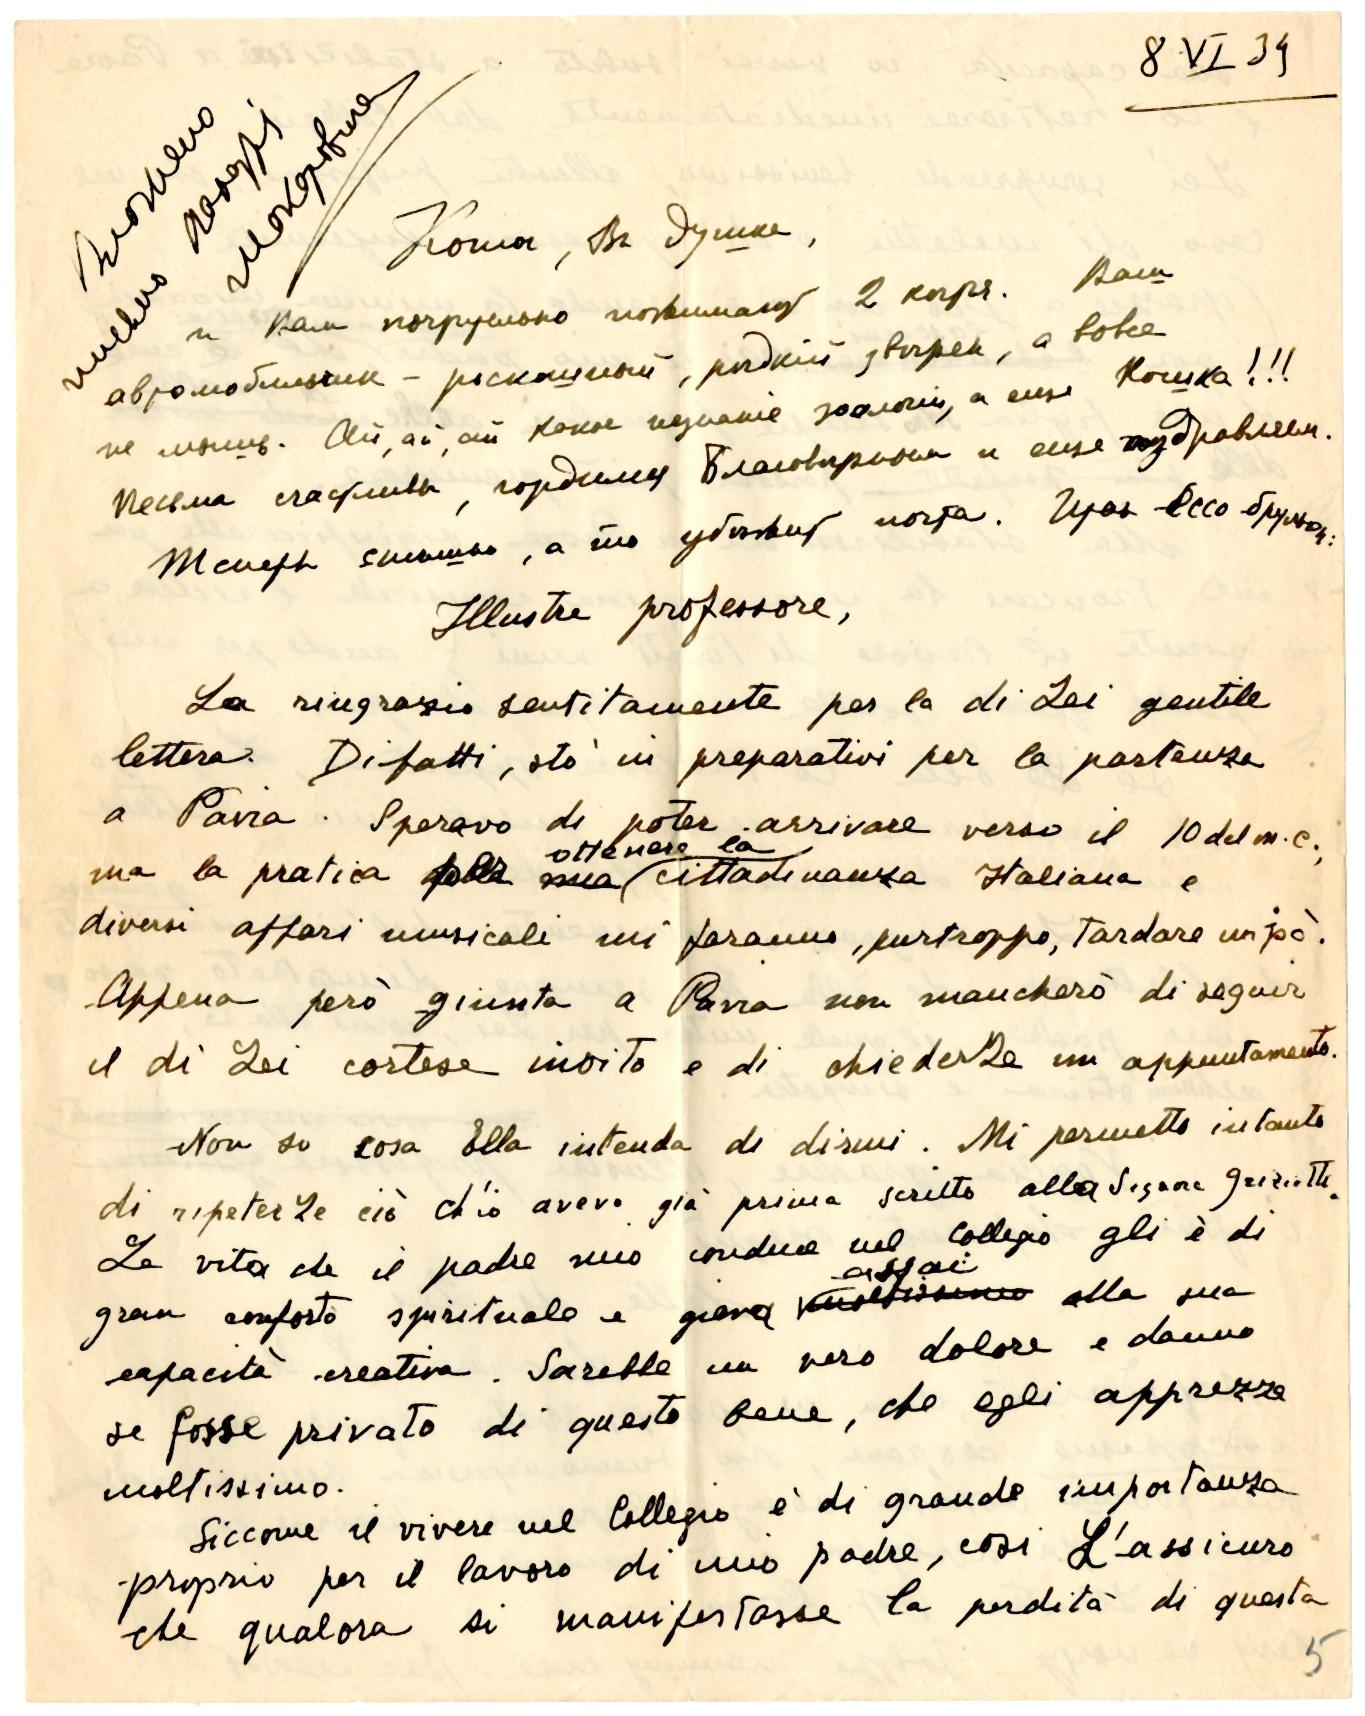 8 VI 34
Вложено
письмо
Котя, Вы душка,
и Вам 2 когтя. Ваш
автомобильчик – роскошный, редкий зверек, а вовсе
не мышь. Ай, ай, ай какое незнание зоологии, а еще Кошка!!!
Весьма счастливы, гордимся и еще поздравляем.
Теперь спешно, а то убежит почта.
Illustre professore,
La ringrazio sentitamente per la di Lei gentile
lettera. Difatti, stò in preparativi per la partenza
a Pavia. Speravo di poter arrivare verso il 10 del m.c.,
ma la pratica mia ottenere la cittadinanza Italiana e
diversi affari musicali mi faranno, purtroppo, tardare un pò.
Appena però giunta a Pavia non mancherò di seguir
il di Lei cortese invito e di chiederLe un appuntamento.
Non so cosa Ella intenda di dirmi. Mi permetto intanto
di ripeterLe ciò ch'io avevo già prima scritto alla Signora Griziotti.
La vita che il padre mio conduce nel Collegio gli è di
gran conforto spirituale e giova moltissimo assai alla sua
capacità creativa. Sarebbe un vero dolore e danno
se fosse privato di questo bene, che egli apprezza
moltissimo.
Siccome il vivere nel Collegio è di grande importanza
proprio per il lavoro di mio padre, così L'assicuro
che qualora si manifestasse la perdità di questa
5